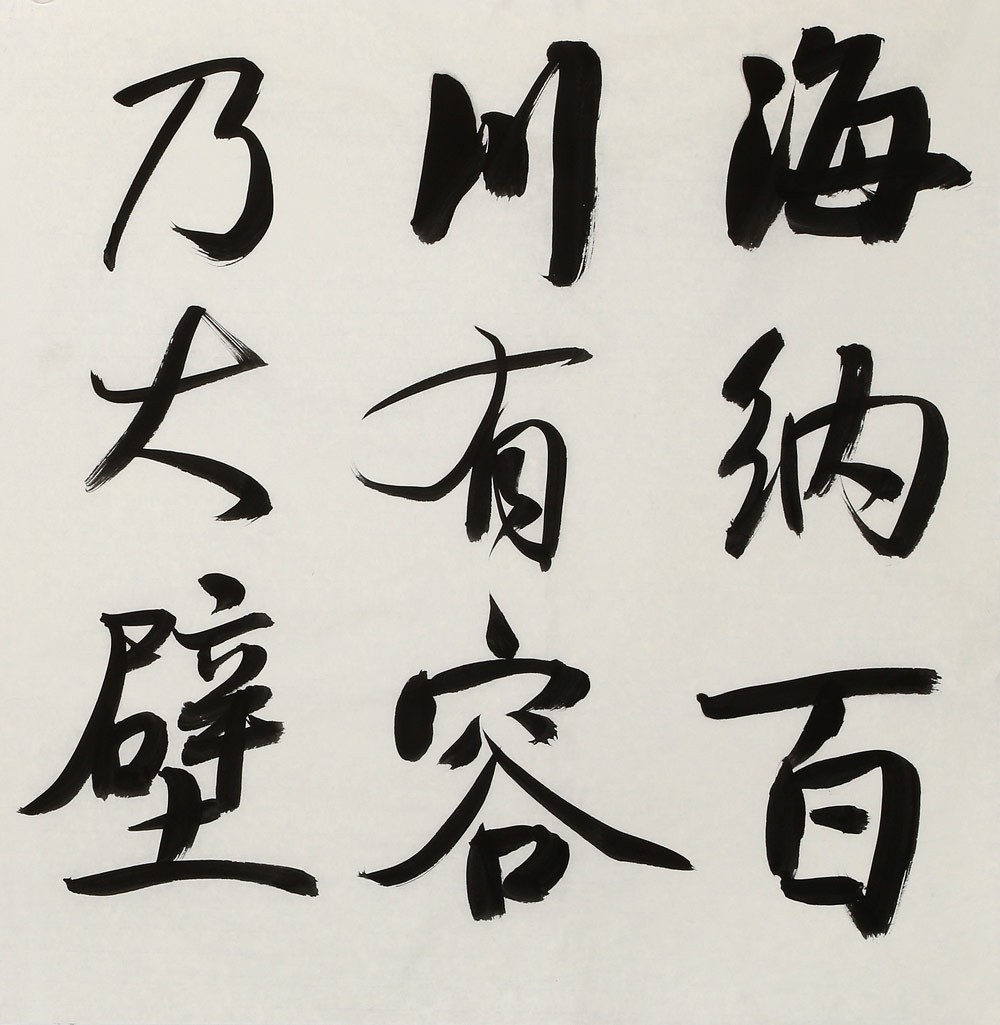 海纳百
川有容
乃大壁